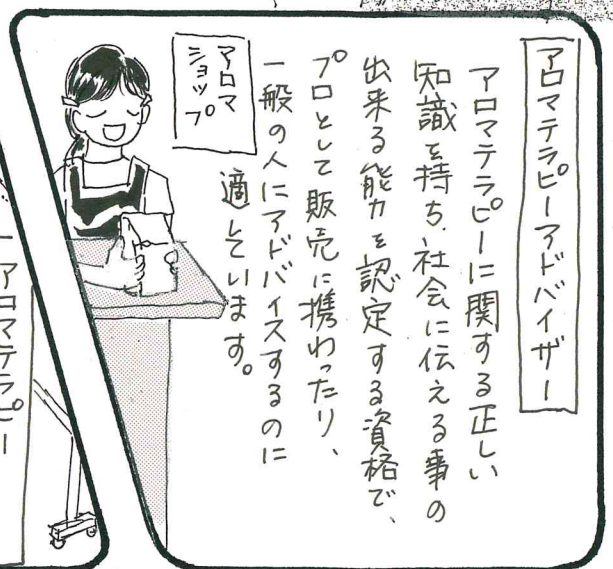 アロマテラピーアドバイザー
アロマテラピーに関する正しい
知識を持ち、社会に伝える事の
出来る能力を認定する資格で、
プロとして販売に携わったり、
一般の人にアドバイスするのに
適しています。
アロマ
ショップ
アロマテラピー